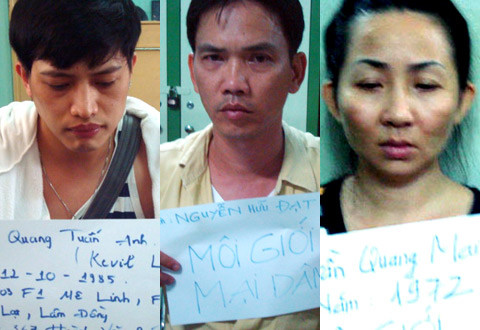 Quang Tuấn Anh
(Kevil L
12-10-1985.
F1 MÊ Linh, F
Lạt, Lâm Đồng
NGUYỄN HỮU ĐẠT
MÔI GIỚI
MẠI DÂM
Quang Mai
Năm: 1972
GIỚI